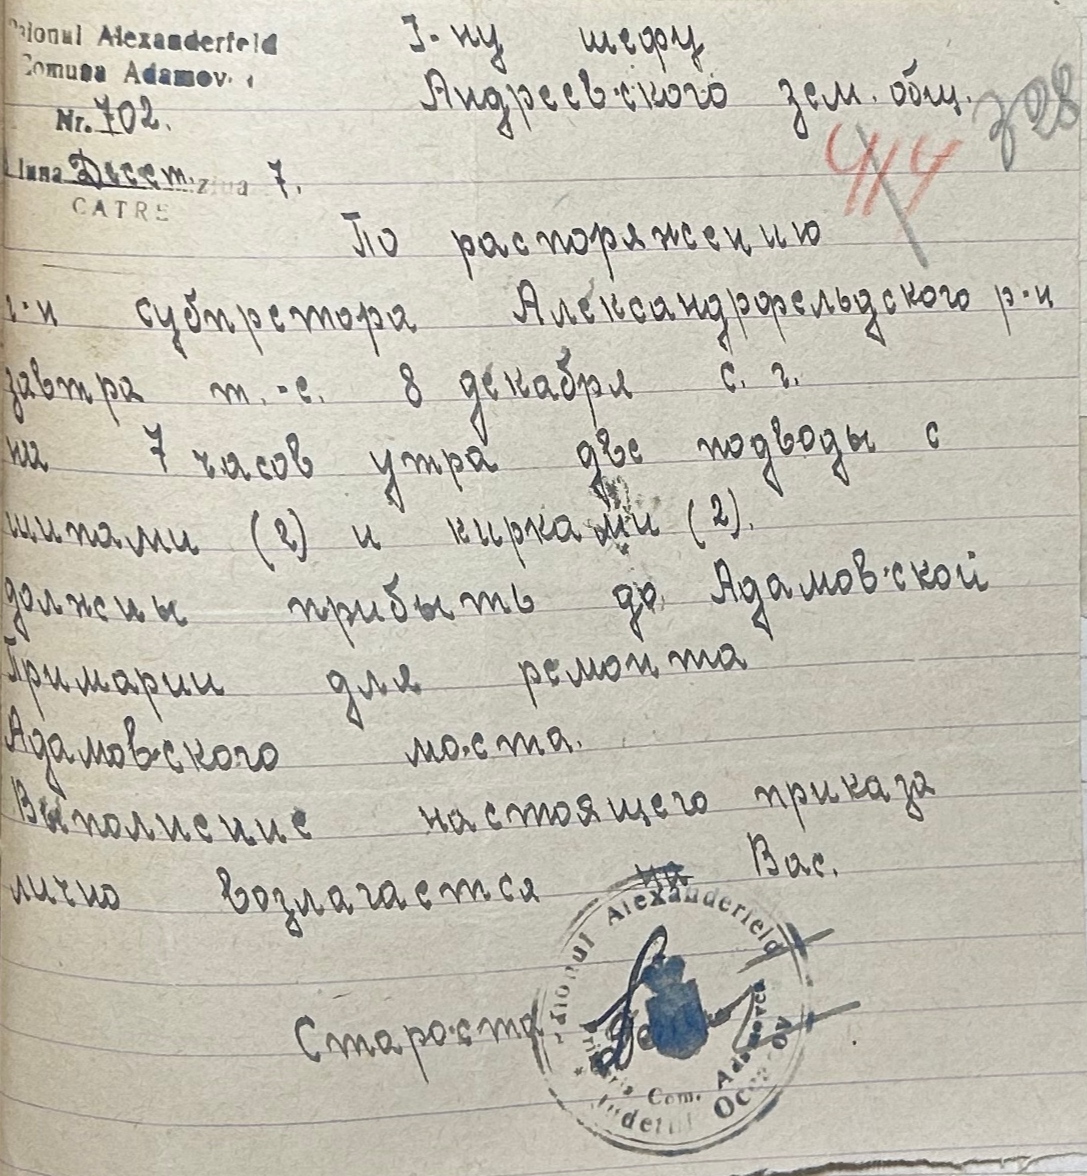 Raionul Alexanderfeld
Comuna Adamov
Nr. 702.
Luna Decem. ziua 7.
CATRE
Г-ну шефу
Андреевского зем. общ.
414
По распоряжению
г-н субпретора Александрфельдского р-н
завтра т.-е. 8 декабря с. г.
на 7 часов утра две подводы с
шипами (2) и кирками (2).
должны прибыть до Адамовской
Примарии для ремонта
Адамовского моста.
Выполнение настоящего приказа
лично возлагается на Вас.
Староста
Raionul Alexanderfeld
Primaria Com. Adamovca
Judetul Oceacov